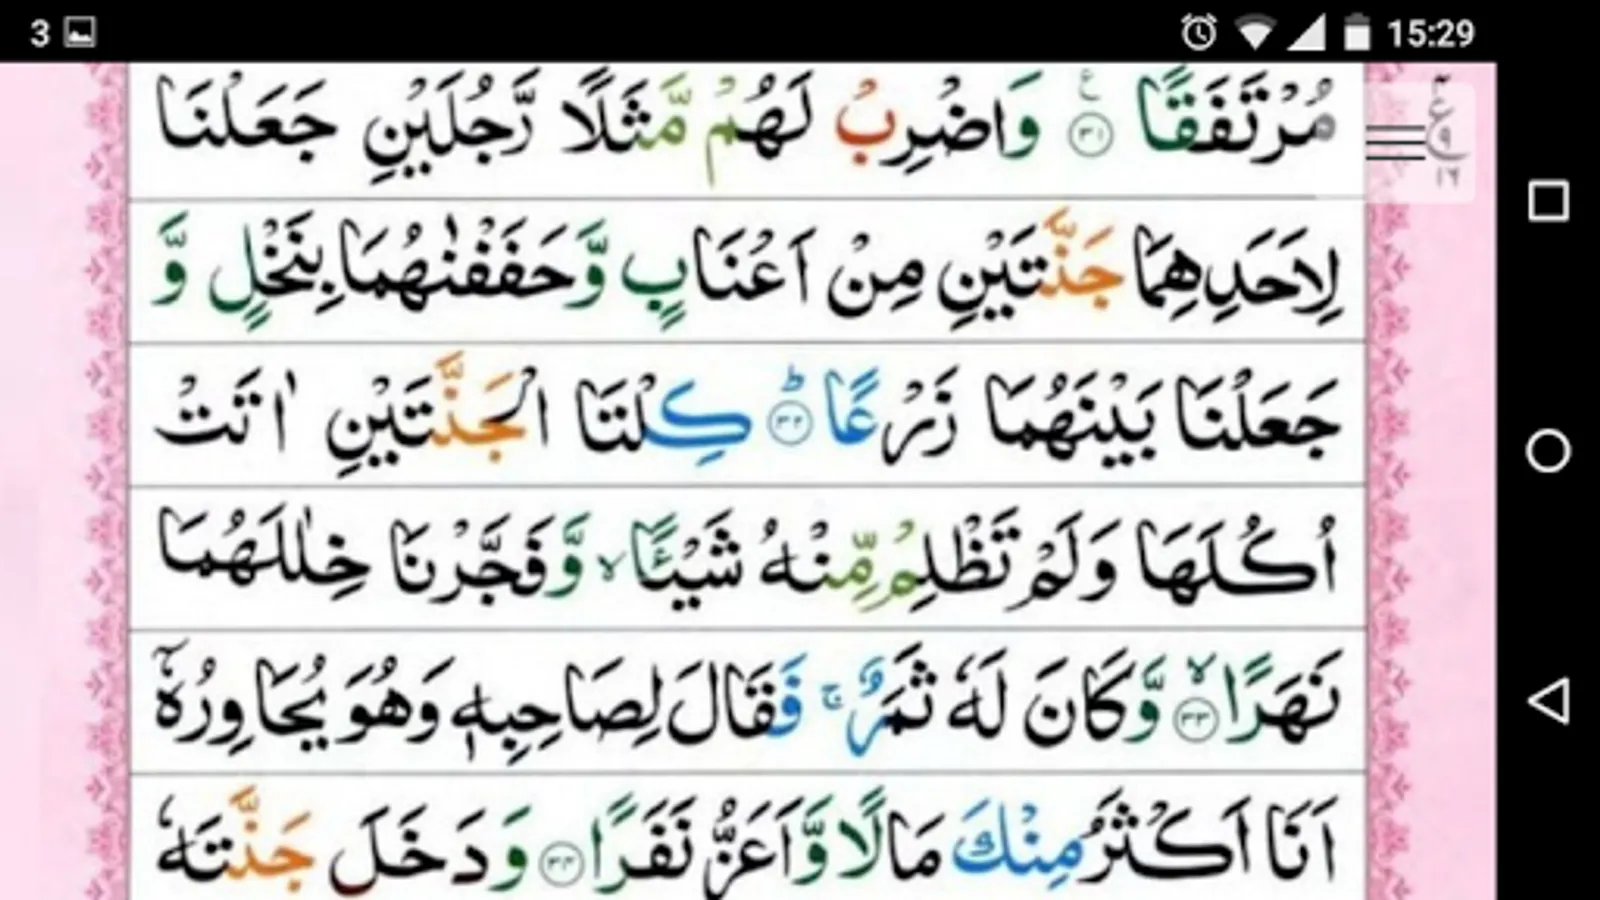 3 15:29
مُرْتَفَقًا ﴿۳۱﴾ ع وَاضْرِبْ لَهُمْ مَّثَلًا رَّجُلَيْنِ جَعَلْنَا
ع ۹ ۱۶
لِاَحَدِهِمَا جَنَّتَيْنِ مِنْ اَعْنَابٍ وَّحَفَفْنٰهُمَا بِنَخْلٍ وَّ
جَعَلْنَا بَيْنَهُمَا زَرْعًا ؕ﴿۳۲﴾ كِلْتَا الْجَنَّتَيْنِ اٰتَتْ
اُكُلَهَا وَلَمْ تَظْلِمْ مِّنْهُ شَيْئًا ۙ وَّفَجَّرْنَا خِلٰلَهُمَا
نَهَرًا ۙ﴿۳۳﴾ وَّكَانَ لَهٗ ثَمَرٌ ۚ فَقَالَ لِصَاحِبِهٖ وَهُوَ يُحَاوِرُهٗۤ
اَنَا اَكْثَرُ مِنْكَ مَالًا وَّاَعَزُّ نَفَرًا ﴿۳۴﴾ وَدَخَلَ جَنَّتَهٗ